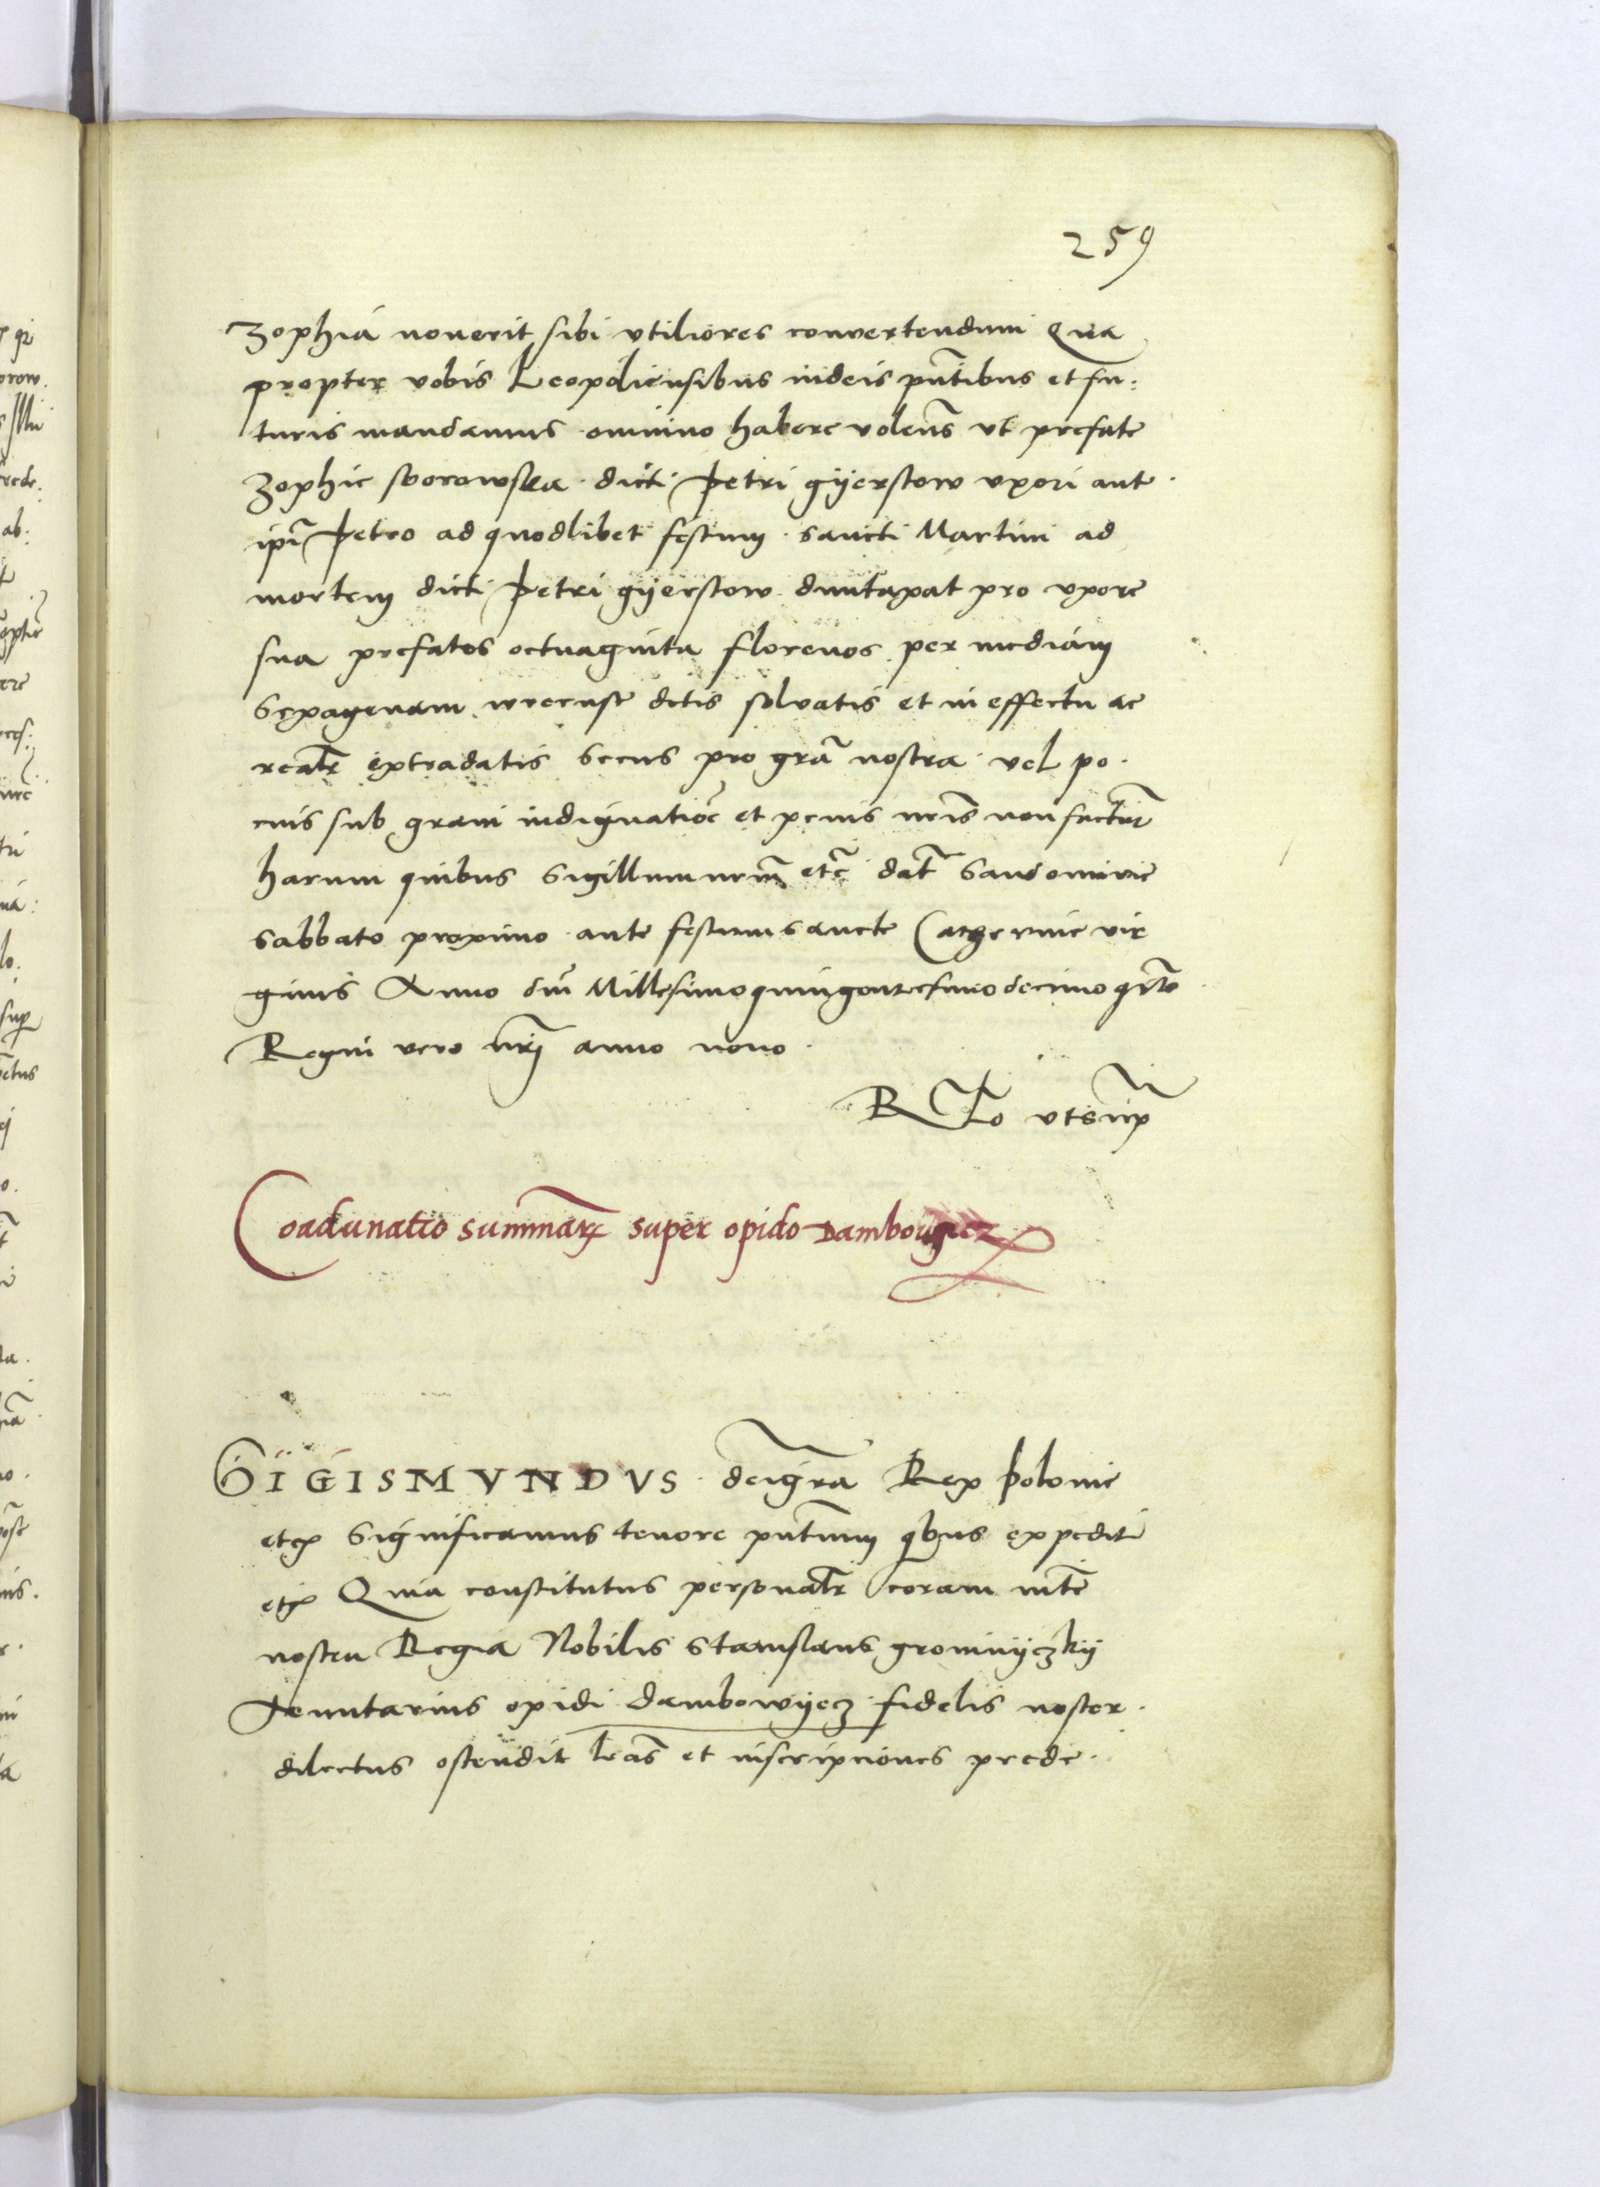 259
Zophia noverit sibi utiliores convertendum Qua
propter vobis Leopoliensibus iudeis pntibus et fu:
turis mandamus omnino habere volens ut prefate
Zophie sborowska dicti Petri gyerstow uxori ante
ipm Petro ad quodlibet festum sancti Martini ad
mortem dicti Petri gyerstow duntaxat pro uxore
sua prefatos octuaginta florenos per mediam
sexagenam detis solvatis et in effectu ac
realr extradatis secus pro gra nostra vel po.
cius sub gravi indignatioe et penis nris non factur
harum quibus sigillum nrm etc dat Sandomirie
sabbato proximo ante festum sancte Catherine vir
ginis Anno dni Millesimoquingentesimodecimoqrto
Regni vero nri anno nono.
R to utsup
Coadunatio summar super opido Dambowyecz
SIGISMVNDVS dei gra Rex Polonie
etc Significamus tenore pntium qbus expedit
etc Quia constitutus personalr coram mte
nostra Regia Nobilis Stanislaus gromnyczky
Tenutarius opidi dambowyecz fidelis noster
dilectus ostendit lras et inscripciones prede.